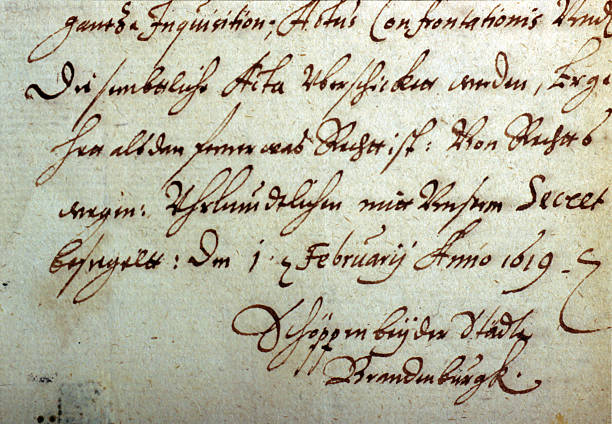 gantze Inquisition, Actus Confrontationis Vnndt
Die sembttliche Acta Vberschicktt werden, Erge
hett alsdan ferner was Rechtt ist: Von Rechts
wegen: Vhrkundtlichen mitt Vnserm Secret
besiegeltt: Den 1. February Anno 1619
Schöppen beyder Städte
Brandenburgk.